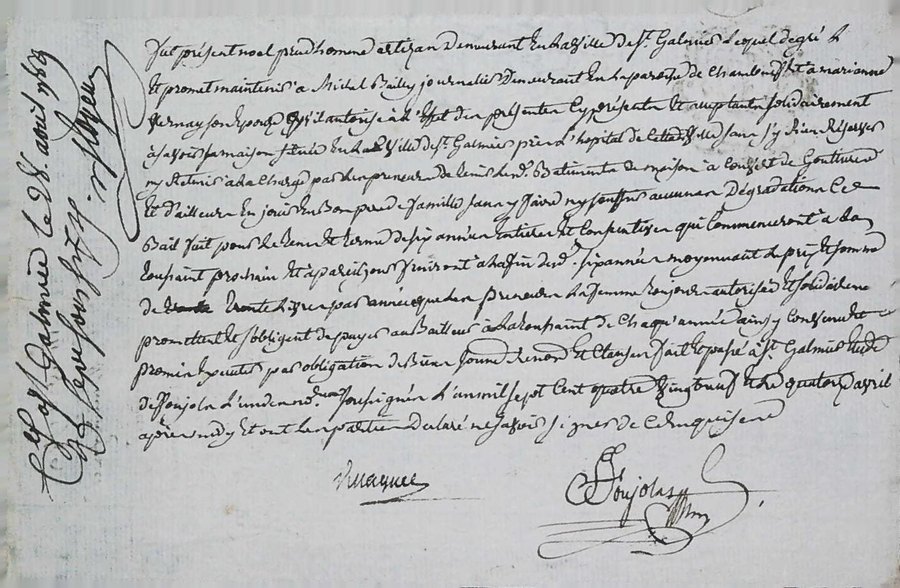 fut présent noel prudhomme artizan Demeurant En la ville de st. Galmier Lequel de gré à
Et promet maintenir à Michel Bailly journalier Demeurant En la paroisse de Chambeuf Et à marianne
vernay son Epouse qu'il autorise à l'Effet des presentes Cy presente Et acceptante solidairement
à savoir sa maison située En la ville de st. Galmier près L'hopital de cette ville sans s'y Rien Reserver
ny Retenir à la Charge par les preneurs de tenir les d. Batiments de maison à Couvert de Goutieres
Et d'ailleurs En jouir En Bon pere de famille sans y faire ny souffrir aucunes Dégradations Ce
Bail fait pour Le tems Et terme de six années Entieres Et Consecutives qui Commenceront à La
toussaint prochain Et à pareil jour finiront à la fin des d. six années moyennant Le prix Et somme
de trente Livres par année que les preneurs La femme toujours autorisée Et solidaire
promettent Et s'obligent de payer au Bailleur à La toussaint de Chaque année ainsy Convenu Et
promis Executer par obligation de Biens soumis. Renon. Et Clauses fait Et passé à st. Galmier Etude
de Soujolas L'un des no. soussignés L'an mil sept Cent quatre vingt neuf Et Le quatorze avril
après midy Et ont Les parties Declaré ne savoir signer de Ce Enquises
Soujolas
à st. Galmier le 28 avril 1789